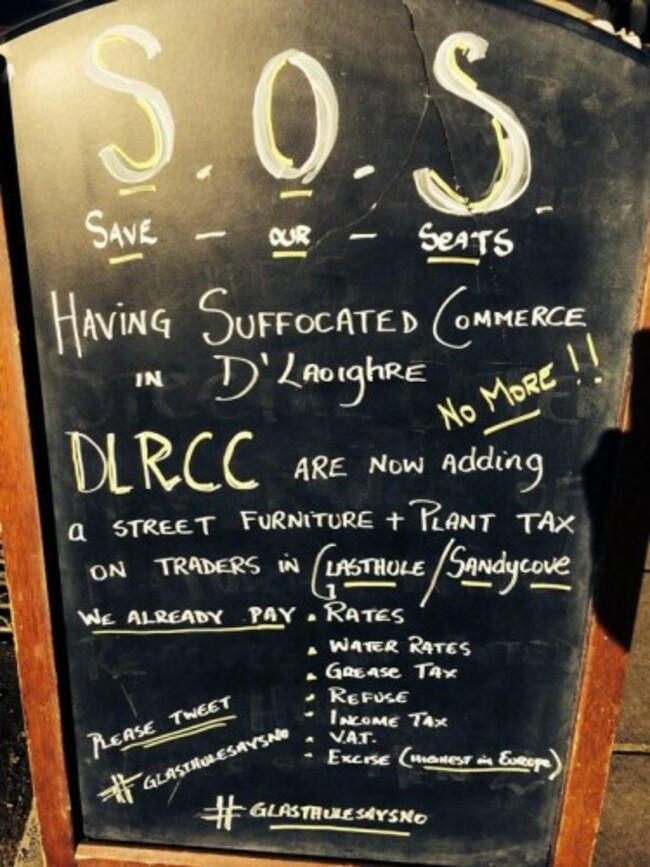 S.O.S.
SAVE - OUR - SEATS
HAVING SUFFOCATED COMMERCE
IN D'LAOIGHRE
NO MORE!!
DLRCC ARE NOW Adding
a STREET FURNITURE + PLANT TAX
ON TRADERS IN GLASTHULE/SANDYCOVE
WE ALREADY PAY . RATES
. WATER RATES
. GREASE TAX
- REFUSE
- INCOME TAX
- V.A.T.
- EXCISE (HIGHEST in EUROPE)
PLEASE TWEET
#GLASTHULESAYSNO
#GLASTHULESAYSNO